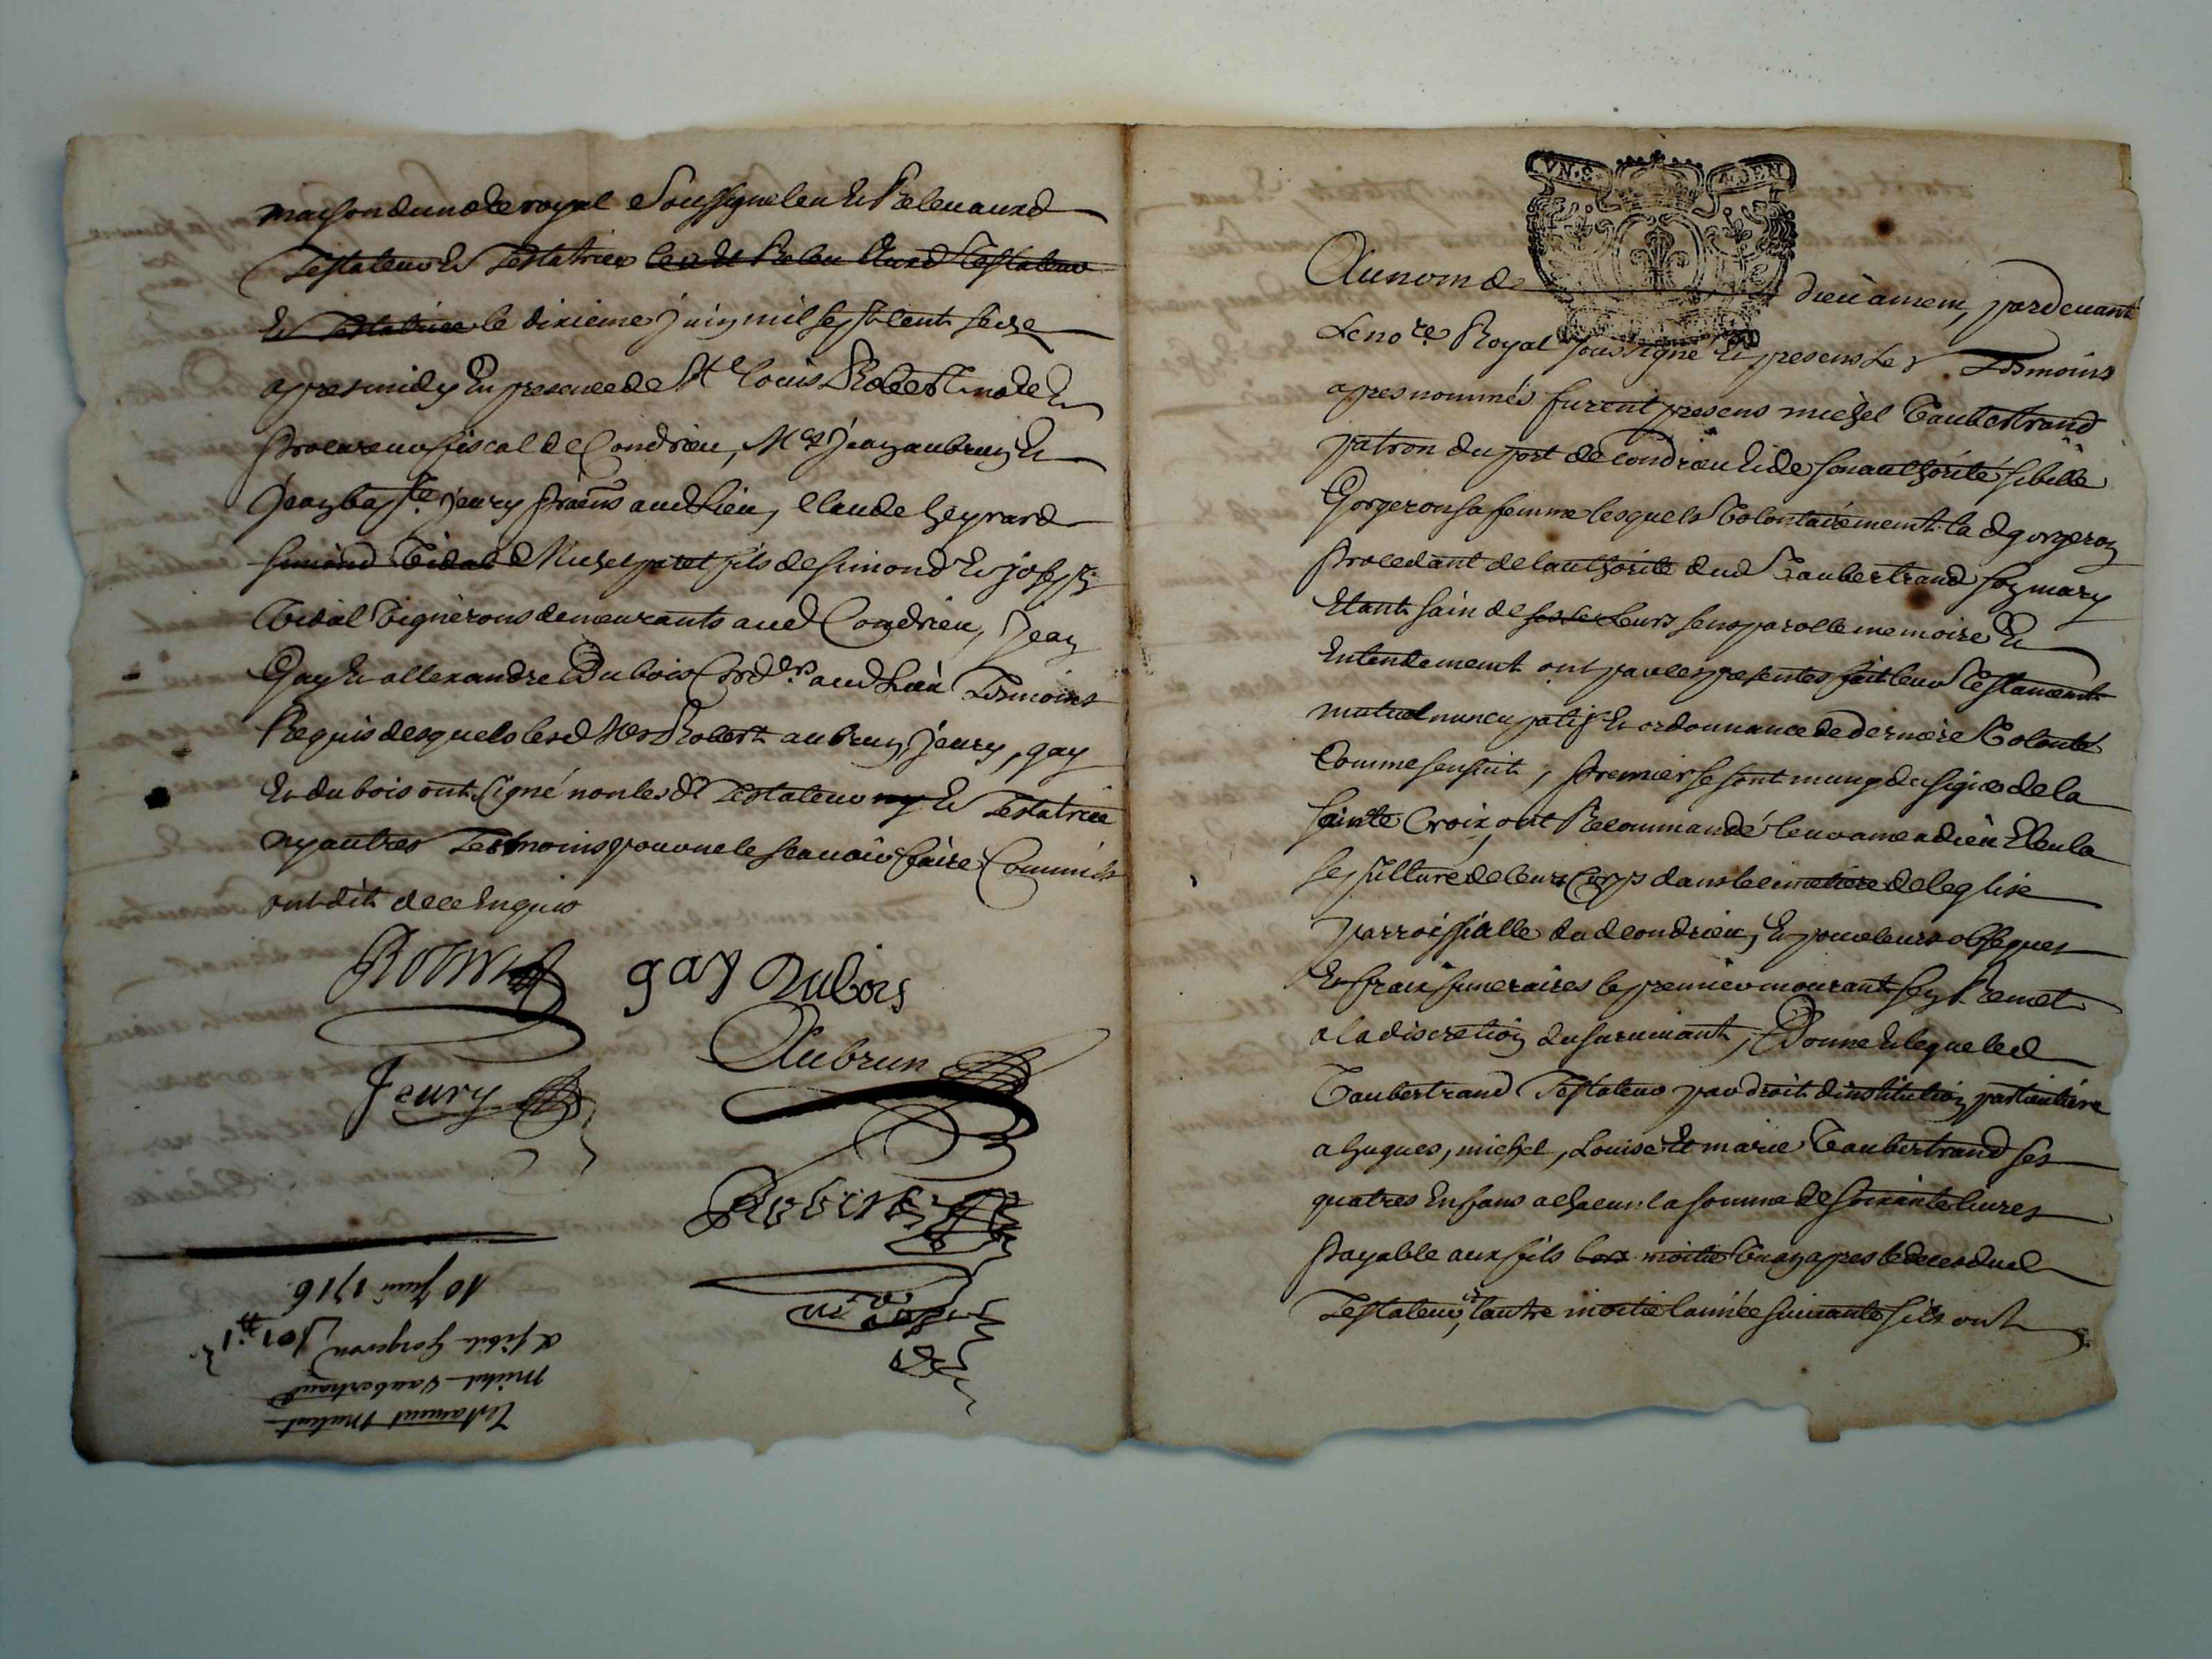 maison du no.re royal soussigne leu et releu ausd
Testateur et Testatrice leu et Releu Ausd Testateur
et Testatrice le dixieme juin mil sept cent seize
apres midy en presence de Me louis Robert no.re et
procureur fiscal de Condrieu, Mes Jean aubrun et
Jean bap.te jeury pratiens aud lieu, Claude
simond Vidal d Michel patet fils de simond et joseph
Vidal Vignerons demeurants aud Condrieu, Jean
Gay et allexandre Dubois Cord.rs aud Lieu Tesmoins
Requis desquels lesd Mes Robert aubrun, Jeury, gay
et dubois ont signé non lesd Testateur ny et Testatrice
ny autres Tesmoins pour ne le scauoir faire Comm'ils
ont dit de ce enquis
gay Dubois
Aubrun
Jeury
Robert
no.re
Au nom de dieu amen, pardeuant
Le no.re Royal soussigné et presens Les Tesmoins
apres nommés furent presens michel Vaubertrand
patron du port de Condrieu et de son authorité sibille
Gorgeron sa femme lesquels Volontairement la d gorgeron
procedant de lauthorité dud Vaubertrand son mary
Etant sain de ses Leurs sens parolle memoire et
Entendement ont par les presentes fait leur Testament
mutuel nuncupatif et ordonnance de derniere Volonté
Comme sensuit, premier se sont munys du signe de la
sainte Croix, ont Recommandé leur ame a dieu Eleu la
sepulture de leurs Corps dans le cimetiere de leglise
parroissialle dud Condrieu, et pour leurs obseques
et frais funeraires le premier mourant sen Remet
a la discretion du suruiuant, Donne et legue led
Vaubertrand Testateur par droit dinstitution particuliere
a hugues, michel, Louise et marie Vaubertrand ses
quatres Enfans a chacun la somme de soixante liures
payable aux fils moitié Un an apres le deces dud
Testateur, et lautre moitié lannée suiuante sils ont
Testament Mutuel
Michel Vaubertrand
& sibile Gorgeron
10 Juin 1716.